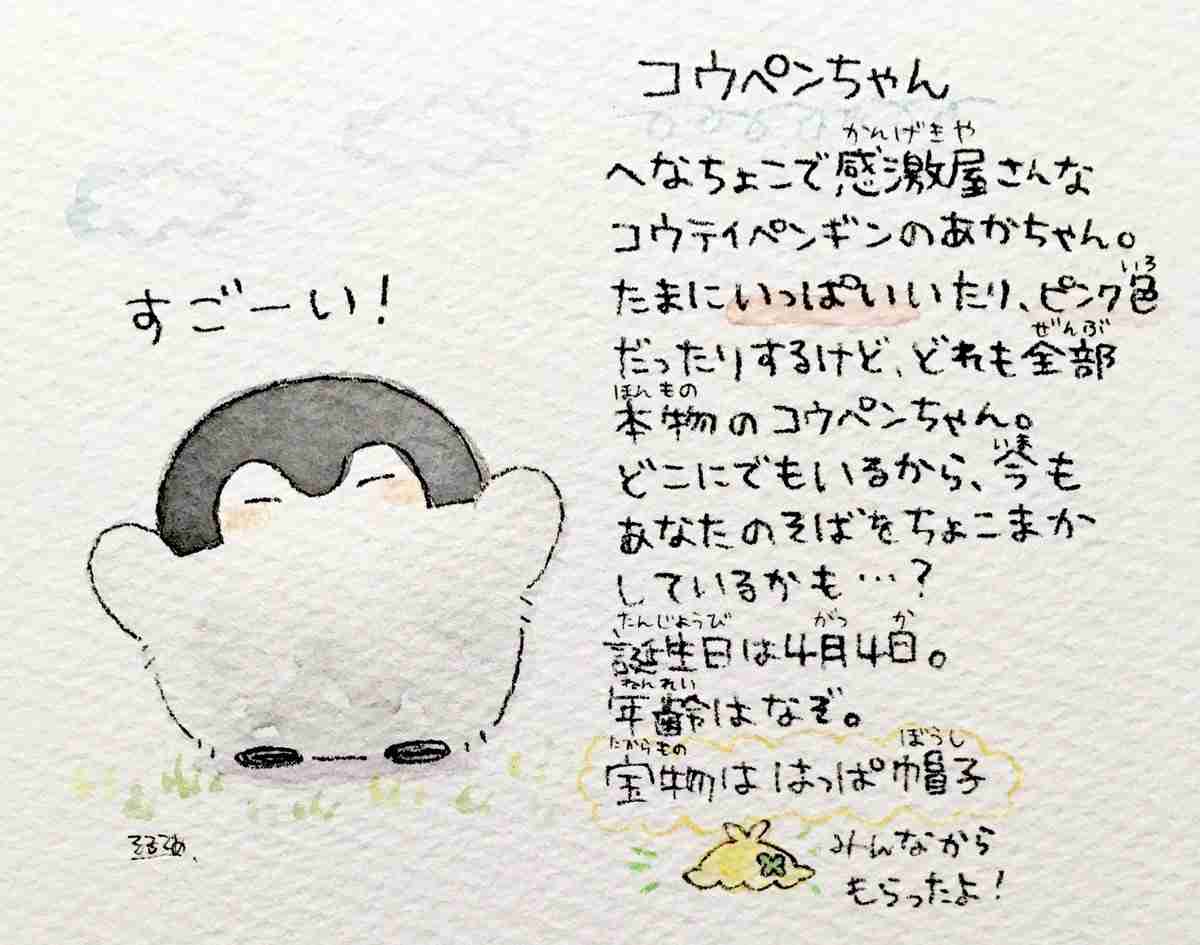 コウペンちゃん
かんげきや
へなちょこで感激屋さんな
コウテイペンギンのあかちゃん。
いろ
たまにいっぱいいたり、ピンク色
ぜんぶ
だったりするけど、どれも全部
ほんもの
本物のコウペンちゃん。
いま
どこにでもいるから、今も
あなたのそばをちょこまか
しているかも…?
たんじょうび がつ か
誕生日は4月4日。
ねんれい
年齢はなぞ。
たからもの ぼうし
宝物ははっぱ帽子
みんなから
もらったよ!
すごーい!
るるてあ、